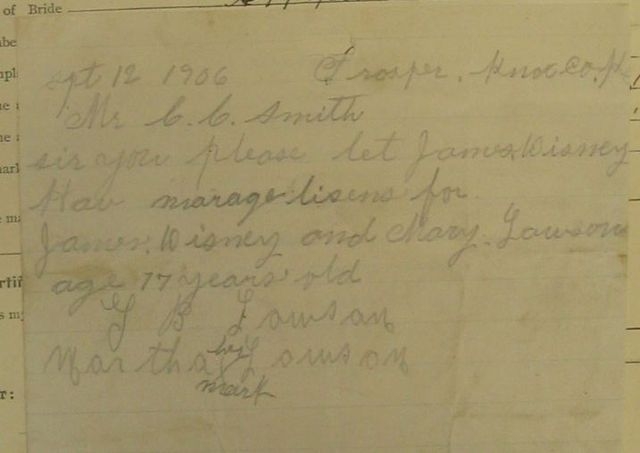 of Bride
sept 12 1906 Prosper, Knox Co, Ky
Mr C. C. Smith
sir you please let James Disney
Hav marage lisens for
James Disney and Mary Lawson
age 17 years old
G B Lawson
Martha her Lawson
mark